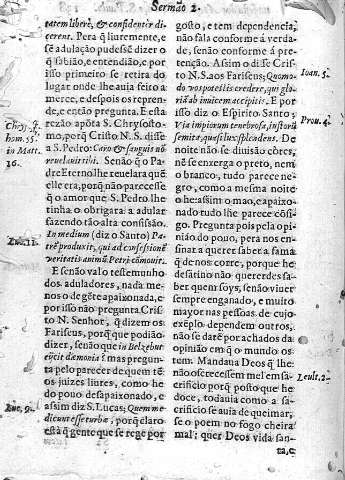 Sermão 2.
tatem liberè, & confidentèr di-
cerent. Pera q̃ liuremente, e
sẽ adulação pudessẽ dizer o
q̃ sabião, e entendião, e por
isso primeiro se retira do
lugar onde lhe auia feito a
merce, e despois os repren-
de, e então pregunta. E esta
rezão apõta S. Chrysosto-
mo, porq̃ Cristo N.S. disse
a S. Pedro: Caro & sanguis nõ
reuelauit tibi. Senão q̃ o Pa
dre Eterno lhe reuelara quẽ
elle era, porq̃ não parecesse
q̃ o amor que S. Pedro lhe
tinha o obrigara a adular
fazendo tão alta confissão.
In medium (diz o Santo) Pa-
trẽ produxit, qui ad confessionẽ
veritatis animũ Petri cõmouit.
E senão val o testemunho
dos aduladores, nada me-
nos o de gẽte apaixonada, e
por isso não pregunta Cris-
to N. Senhor, q̃ dizem os
Fariseus, porq̃ que podião
dizer, senão que in Belzebut
eijcit dæmonia? mas pregunta
pelo parecer de quem tẽ
os juizes liures, como he
o pouo desapaixonado, e
assim diz S. Lucas; Quem me
dicunt esse turbæ, porq̃ claro
está q̃ gente que se rege por
gosto, e tem dependencia,
não fala conforme á verda-
de, senão conforme á pre-
tenção. Assim o disse Cris-
to N.S. aos Fariseus; Quomo-
do vos potestis credere, qui glo-
riã ab inuicem accipitis. E por
isso diz o Espirito Santo;
Via impiorum tenebrosa, iustorũ
semita, quasi lux splendens. De
noite não se diuisão córes,
nẽ se enxerga o preto, nem
o branco, tudo parece ne-
gro, como a mesma noite
o he: assim o mao, e apaixo-
nado tudo lhe parece cõsi-
go. Pregunta pois pela opi-
nião do pouo, pera nos en-
sinar a querer saber a fama
q̃ de nos corre, porque he
desatino não quererdes sa-
ber quem soys, senão viuer
sempre enganado, e muito
mayor nas pessoas de cujo
exẽplo dependem outros,
não se darẽ por achados da
opinião em q̃ o mundo os
tem. Mandaua Deos q̃ lhe
não oferecessem mel em sa-
crificio porq̃ posto que he
doce, todauia como a sa-
crificio se auia de queimar,
se o poem no fogo cheira
mal; quer Deos vida san-
ta, e
Chrys. q̃
hom. 55.
in Matt.
16.
Luc. 11.
Luc. 9.
Ioan. 5.
Prou. 4.
Leuit. 2.